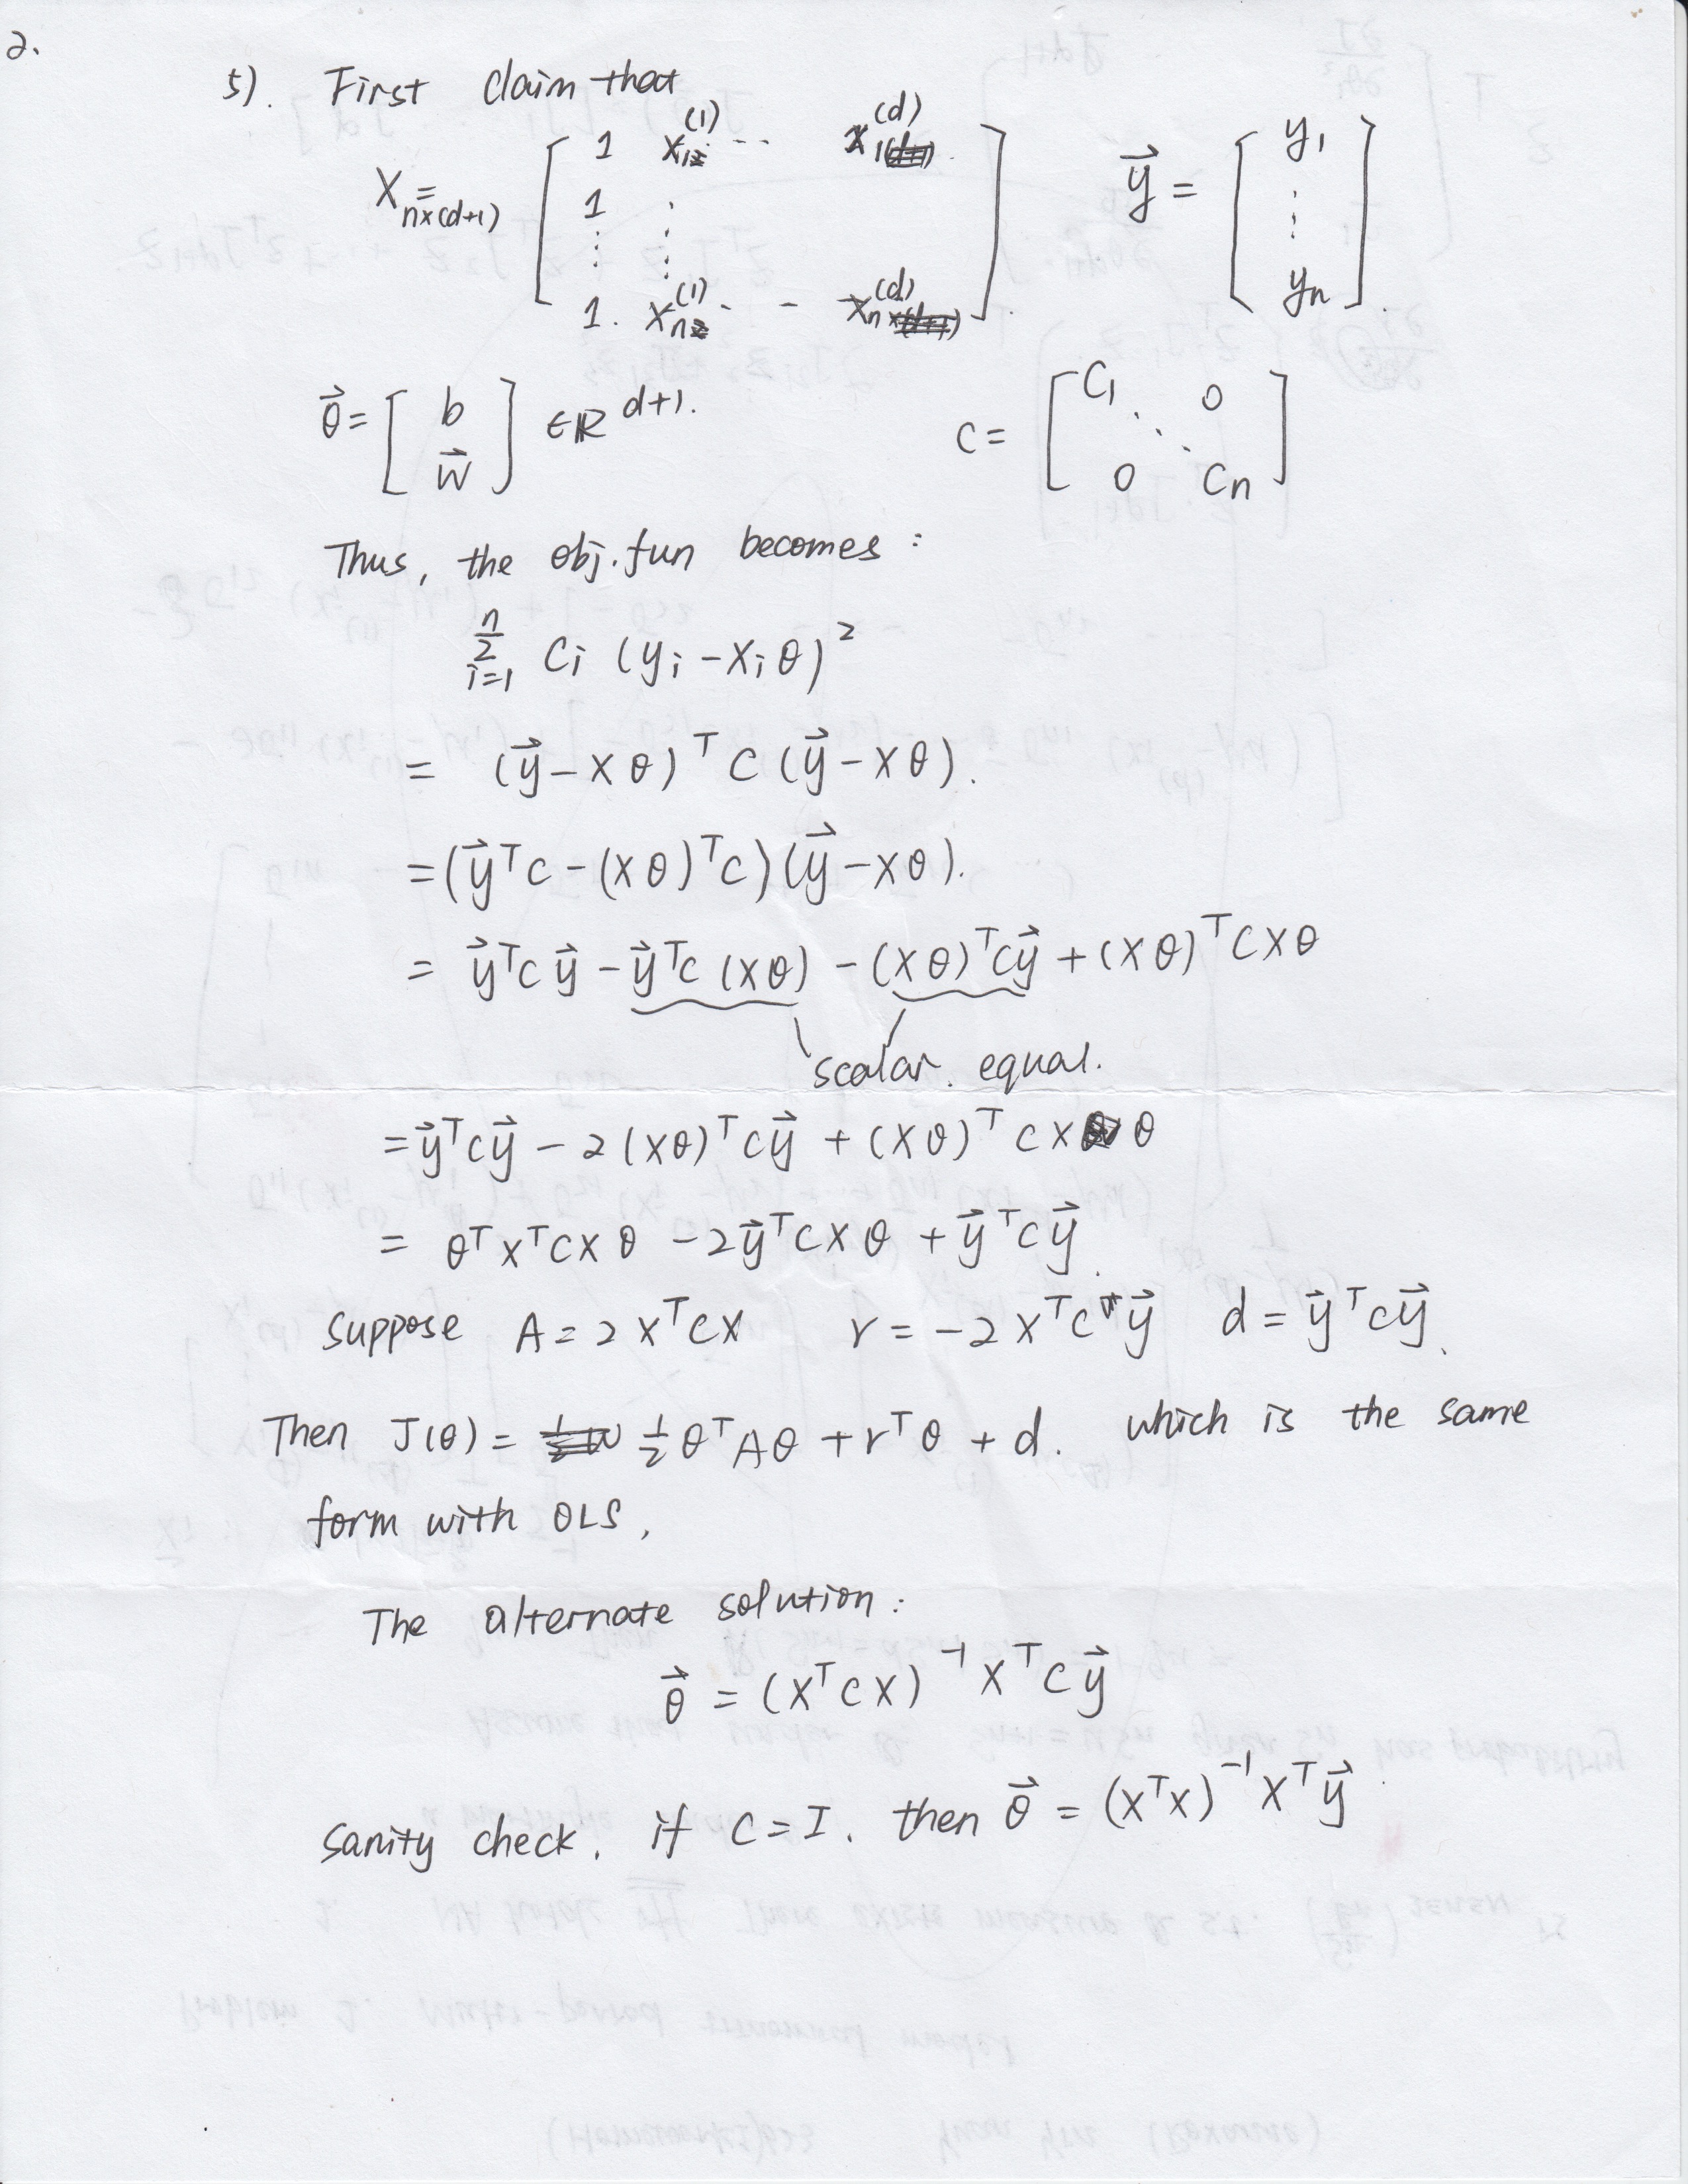 2.
5). First claim that
X_{n×(d+1)} = [ 1 x_1^{(1)} ·· x_1^{(d)} ; 1 ⋮ ; ⋮ ⋮ ; 1. x_n^{(1)} ·- x_n^{(d)} ]. \vec{y} = [ y_1 ⋮ y_n ].
\vec{θ} = [ b ; \vec{w} ] ∈ ℝ^{d+1}. C = [ C_1 0 ⋱ 0 C_n ]
Thus, the obj.fun becomes :
\sum_{i=1}^{n} C_i (y_i - x_i θ)^2
= (\vec{y} - Xθ)^T C (\vec{y} - Xθ).
= (\vec{y}^T C - (Xθ)^T C)(\vec{y} - Xθ).
= \vec{y}^T C \vec{y} - \vec{y}^T C (Xθ) - (Xθ)^T C \vec{y} + (Xθ)^T C X θ
scalar. equal.
= \vec{y}^T C \vec{y} - 2 (Xθ)^T C \vec{y} + (Xθ)^T C X θ
= θ^T X^T C X θ - 2 \vec{y}^T C X θ + \vec{y}^T C \vec{y}.
suppose A = 2 X^T C X r = -2 X^T C^T \vec{y} d = \vec{y}^T C \vec{y}.
Then J(θ) = \frac{1}{2} θ^T A θ + r^T θ + d. which is the same
form with OLS,
The alternate solution :
\vec{θ} = (X^T C X)^{-1} X^T C \vec{y}
Sanity check, if C = I. then \vec{θ} = (X^T X)^{-1} X^T \vec{y}